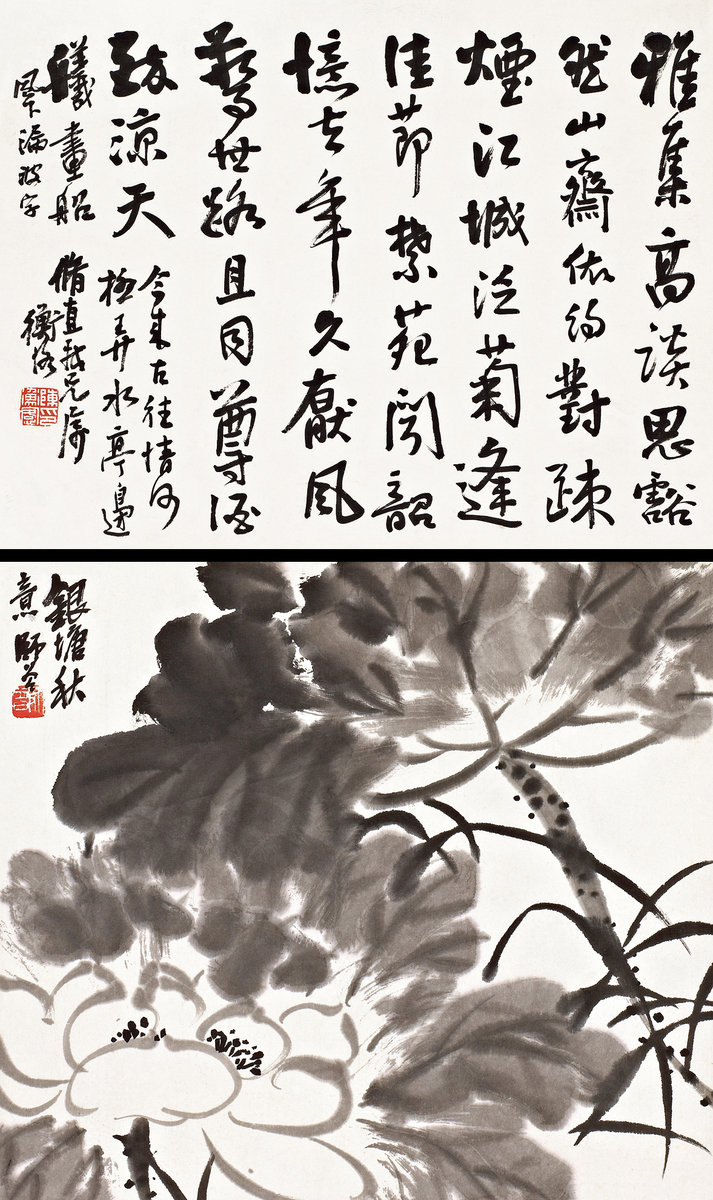 雅集高談思豁
然山齋依約對疎
煙江城泛菊逢
佳節禁苑聞韶
憶去年久厭風
驚世路且同尊酒
致涼天今來古往情何
極弄水亭邊
艤畫船脩直我兄屬
風下漏波字
衡恪
銀塘秋
意師曾